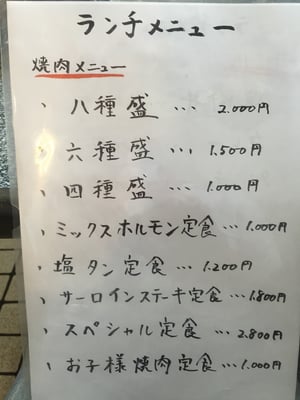 ランチメニュー
焼肉メニュー
、八種盛…2.000円
、六種盛…1.500円
、四種盛…1.000円
、ミックスホルモン定食…1.000円
、塩タン定食…1.200円
、サーロインステーキ定食…1.800円
、スペシャル定食…2.800円
、お子様焼肉定食…1.000円